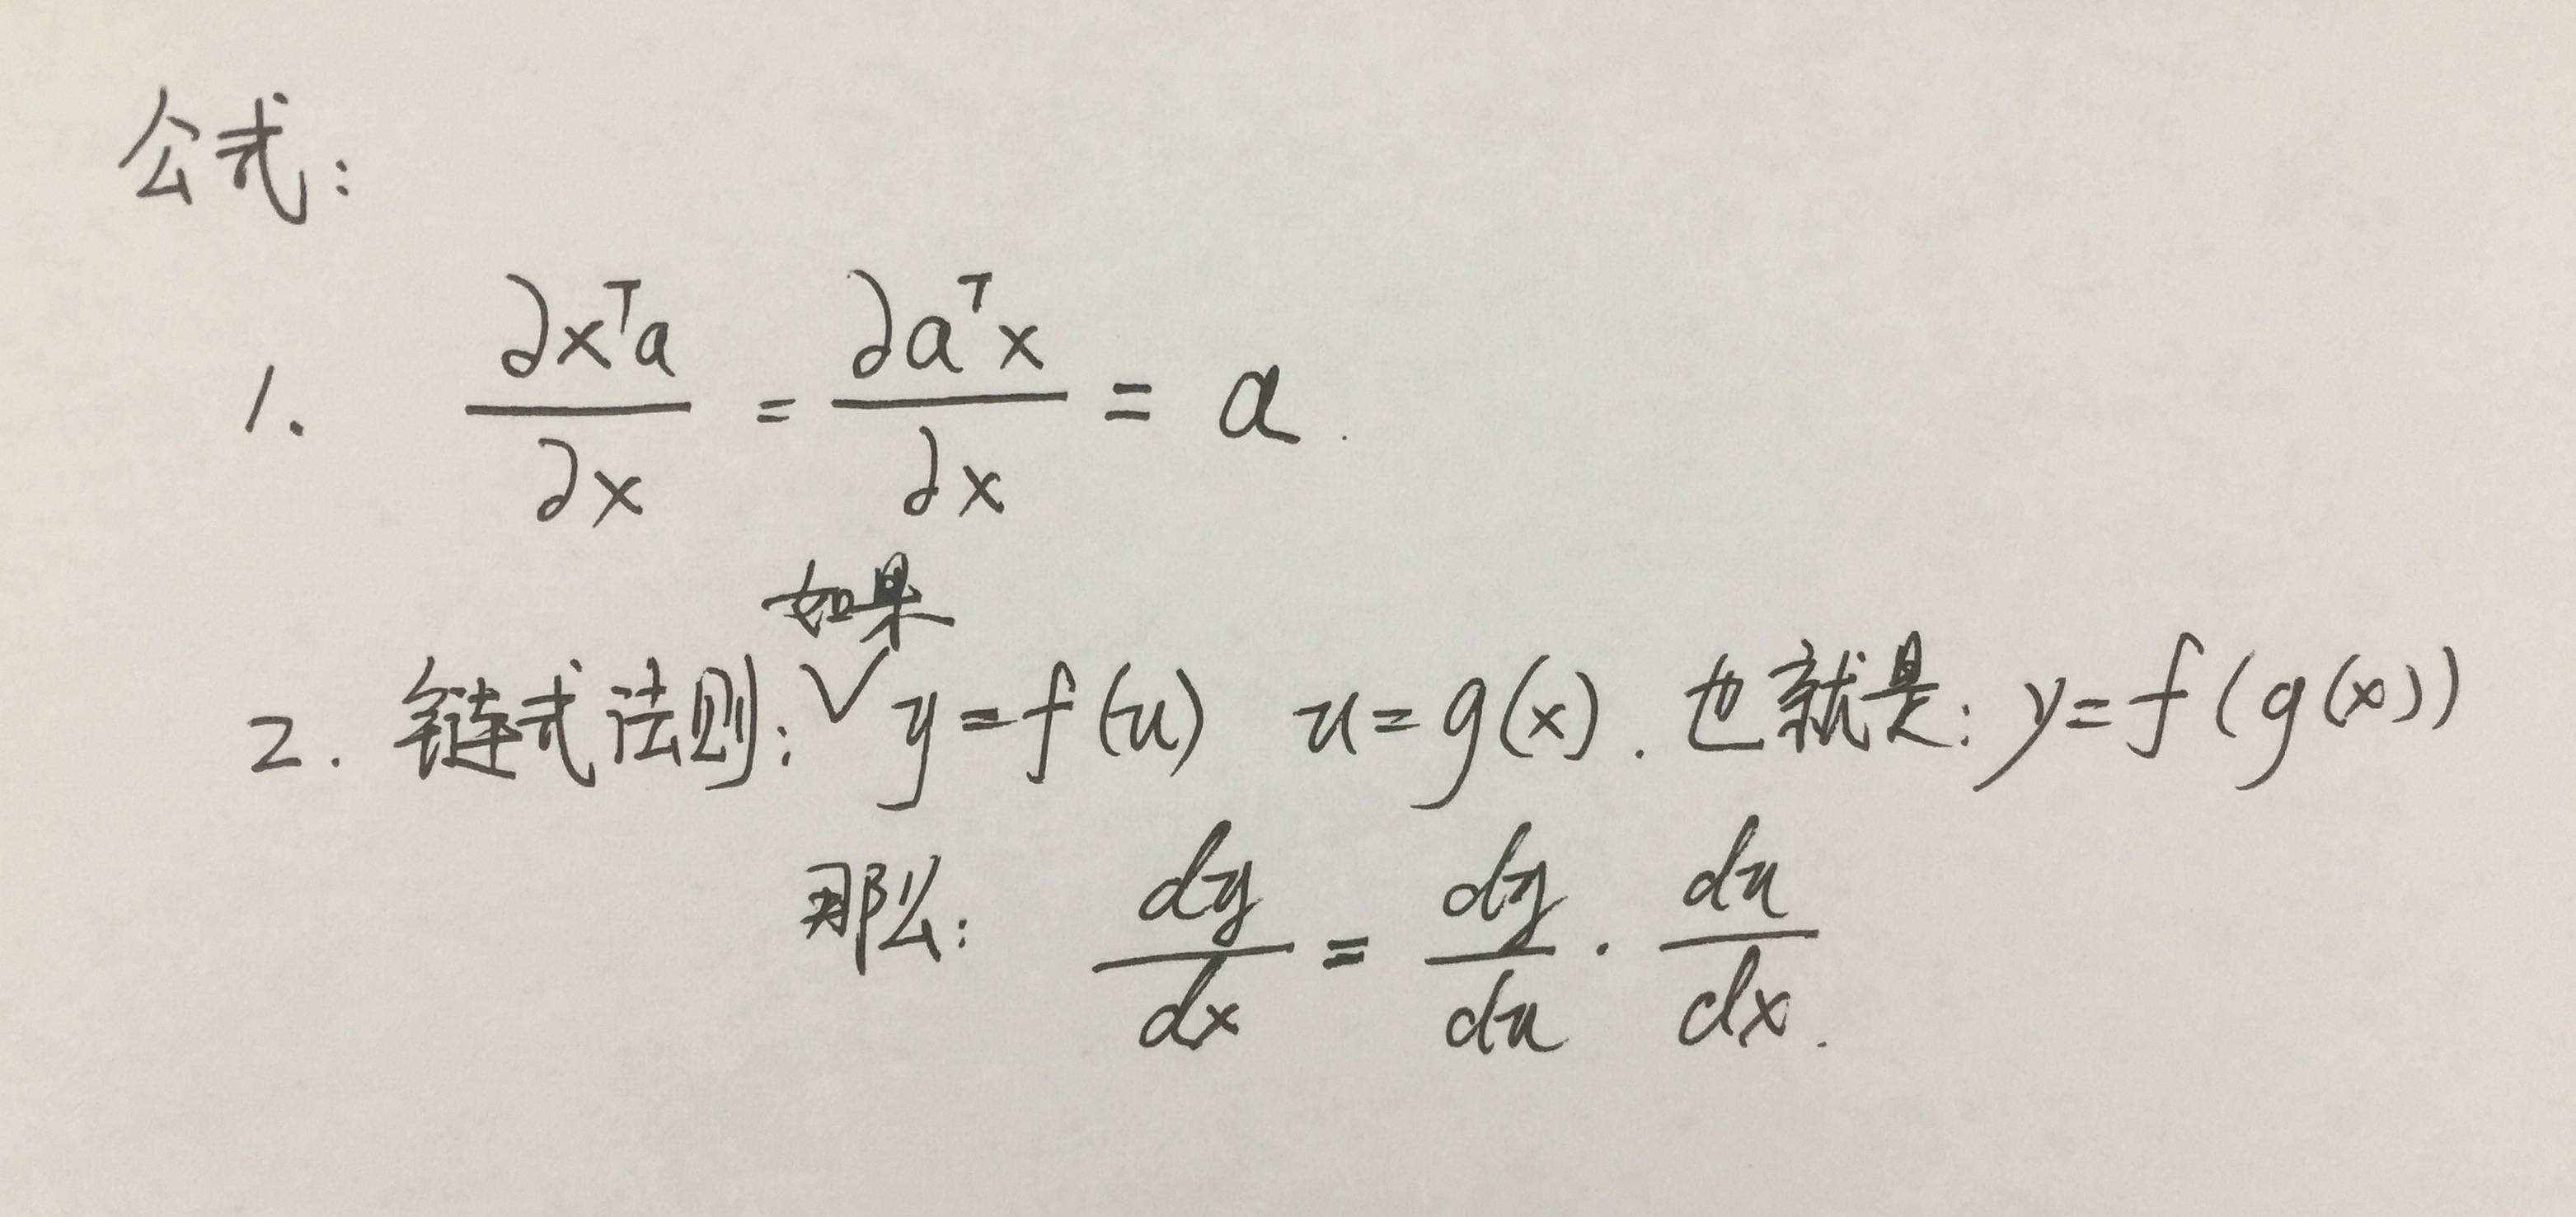 公式：
1. ∂xᵀa/∂x = ∂aᵀx/∂x = a.
2. 链式法则：如果 y=f(u) u=g(x). 也就是：y=f(g(x))
那么：dy/dx = dy/du · du/dx.